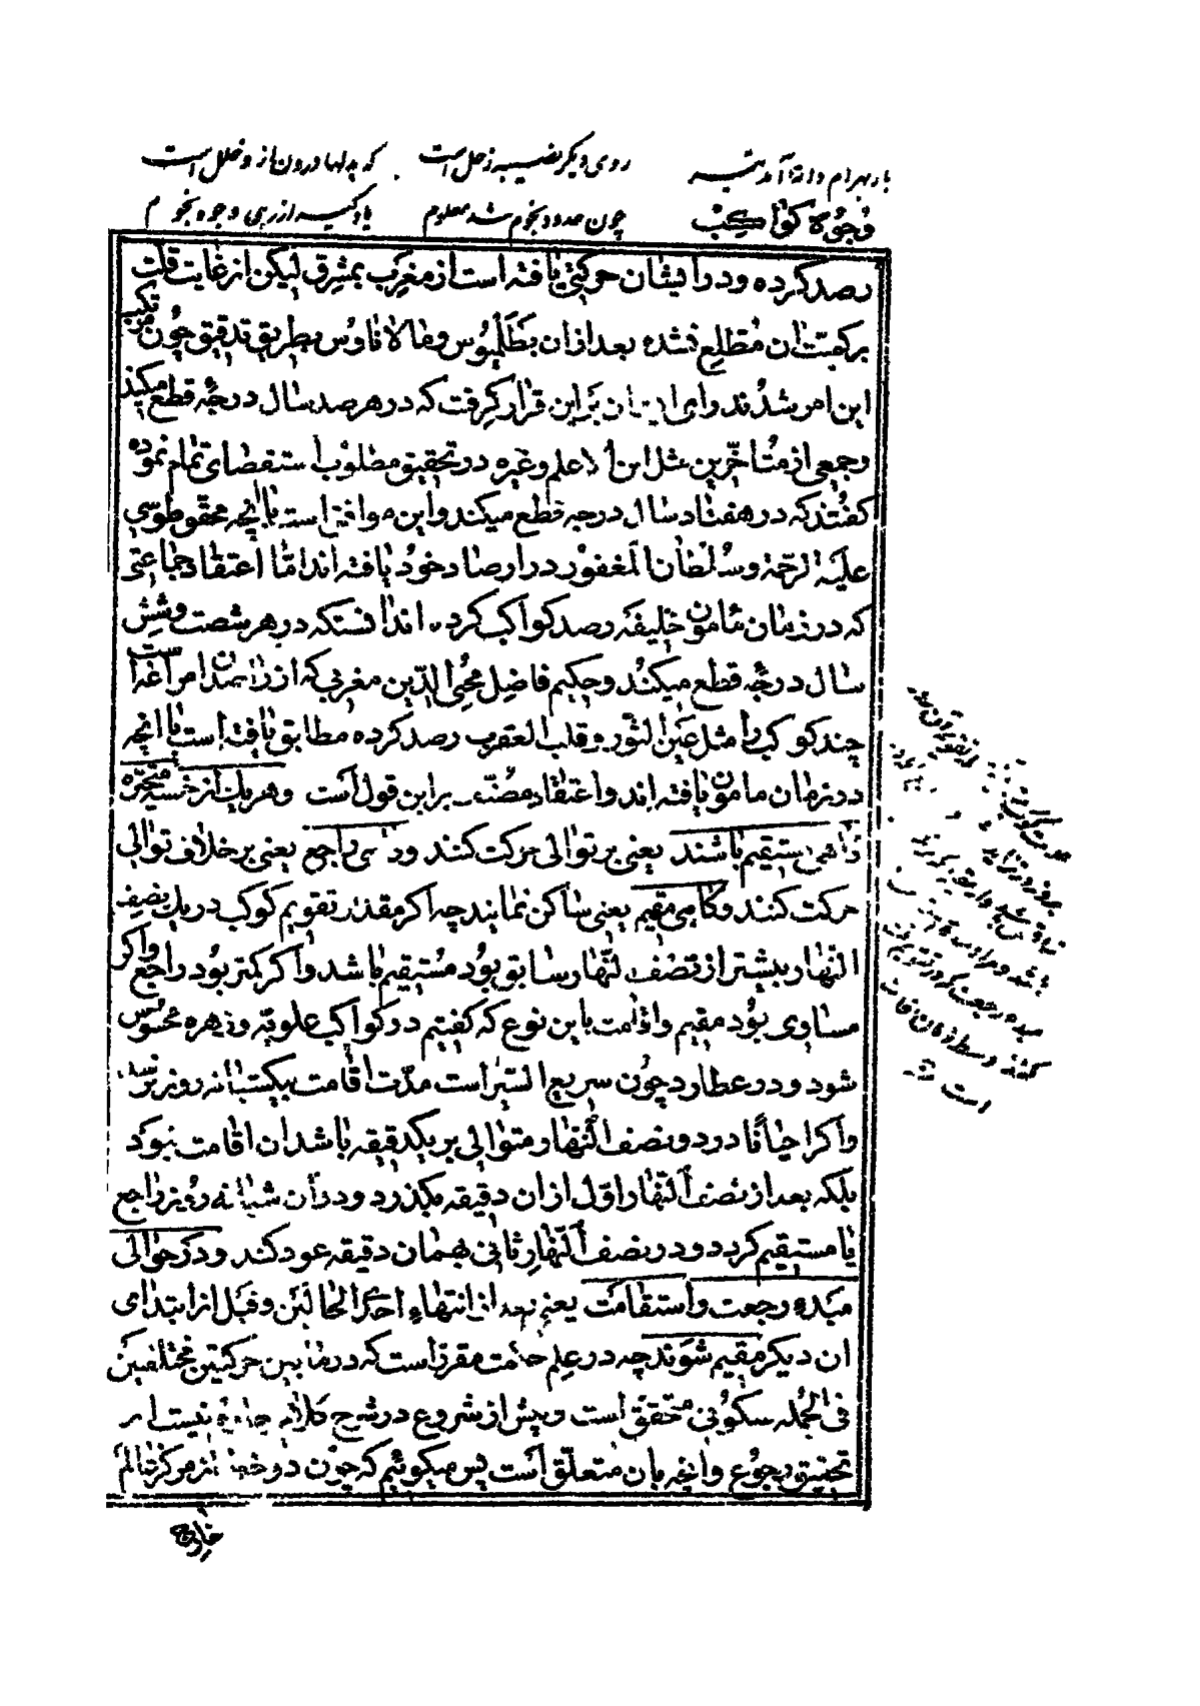 روی دیکر نصیبه زحل است
که بدلها درون از و خلل است
چون حدود نجوم شد معلوم
یاد کیر از پی وجوه نجوم
وجوه کواکب
رصد کرده و در ایشان حرکتی یافته است از مغرب بمشرق لیکن از غایت قلت
بر کمیت ان مطلع نشده بعد ازان بطلمیوس و مالاناوس بطریق تدقیق چون
این امر شدند و رای ایشان براین قرار کرفت که در هر صد سال درجهٔ قطع میکند
و جمعی از متاخرین مثل ابن الاعلم و غیره در تحقیق مطلوب استقصای تمام نموده
کفتند که در هفتاد سال درجه قطع میکند و این موافق است با انچه محقق طوسی
علیه الرحمة و سلطان المغفور در ارصاد خود یافته اند اما اعتقاد جماعتی
که در زمان مامون خلیفه رصد کواکب کرده اند انستکه در هر شصت و شش
سال درجهٔ قطع میکند و حکیم فاضل محیی الدین مغربی که از راصدان مراغه است
چند کوکب را مثل عین الثور و قلب العقرب رصد کرده مطابق یافته است با انچه
در زمان مامون یافته اند و اعتقاد مصنف براین قول است و هر یک از خمسه متحیره
کاهی مستقیم باشند یعنی بر توالی حرکت کنند و کاهی راجع یعنی بر خلاف توالی
حرکت کنند و کاهی مقیم یعنی ساکن نمایند چه اکر مقدار تقویم کوکب در یک نصف
النهار بیشتر از نصف النهار سابق بود مستقیم باشد و اکر کمتر بود راجع و اکر
مساوی بود مقیم و اقامت باین نوع که کفتیم در کواکب علویه و زهره محسوس
شود و در عطارد چون سریع السیر است مدت اقامت بیکشبانه روز نرسد
و اکر احیانا در دو نصف النهار متوالی بر یکدقیقه باشد ان اقامت نبود
بلکه بعد از نصف النهار اول ازان دقیقه بکذرد و دران شبانه روز راجع
یا مستقیم کردد و در نصف النهار ثانی بهمان دقیقه عود کند و در حوالی
مبدء رجعت و استقامت یعنی بعد از انتهاء احدی الحالتین و قبل از ابتدای
ان دیکر مقیم شوند چه در علم حکمت مقرر است که در ما بین حرکتین مختلفین
فی الجمله سکونی محقق است و پیش از شروع در شرح کلام چاره نیست از
تحقیق رجوع و انچه بان متعلق است پس میکوئیم که چون دو خط از مرکز عالم
خارج
کنند وسط زمان اقامت
است